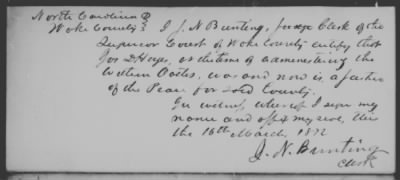 North Carolina }
Wake County } I J. N. Bunting, Clerk of the
Superior Court of Wake County certify that
Jos D Hayes, at the time of administering the
written Oaths, was and now is, a Justice
of the Peace for said County.
In witness whereof I sign my
name and affix my seal, this
the 16th March 1872
J. N. Bunting
Clerk